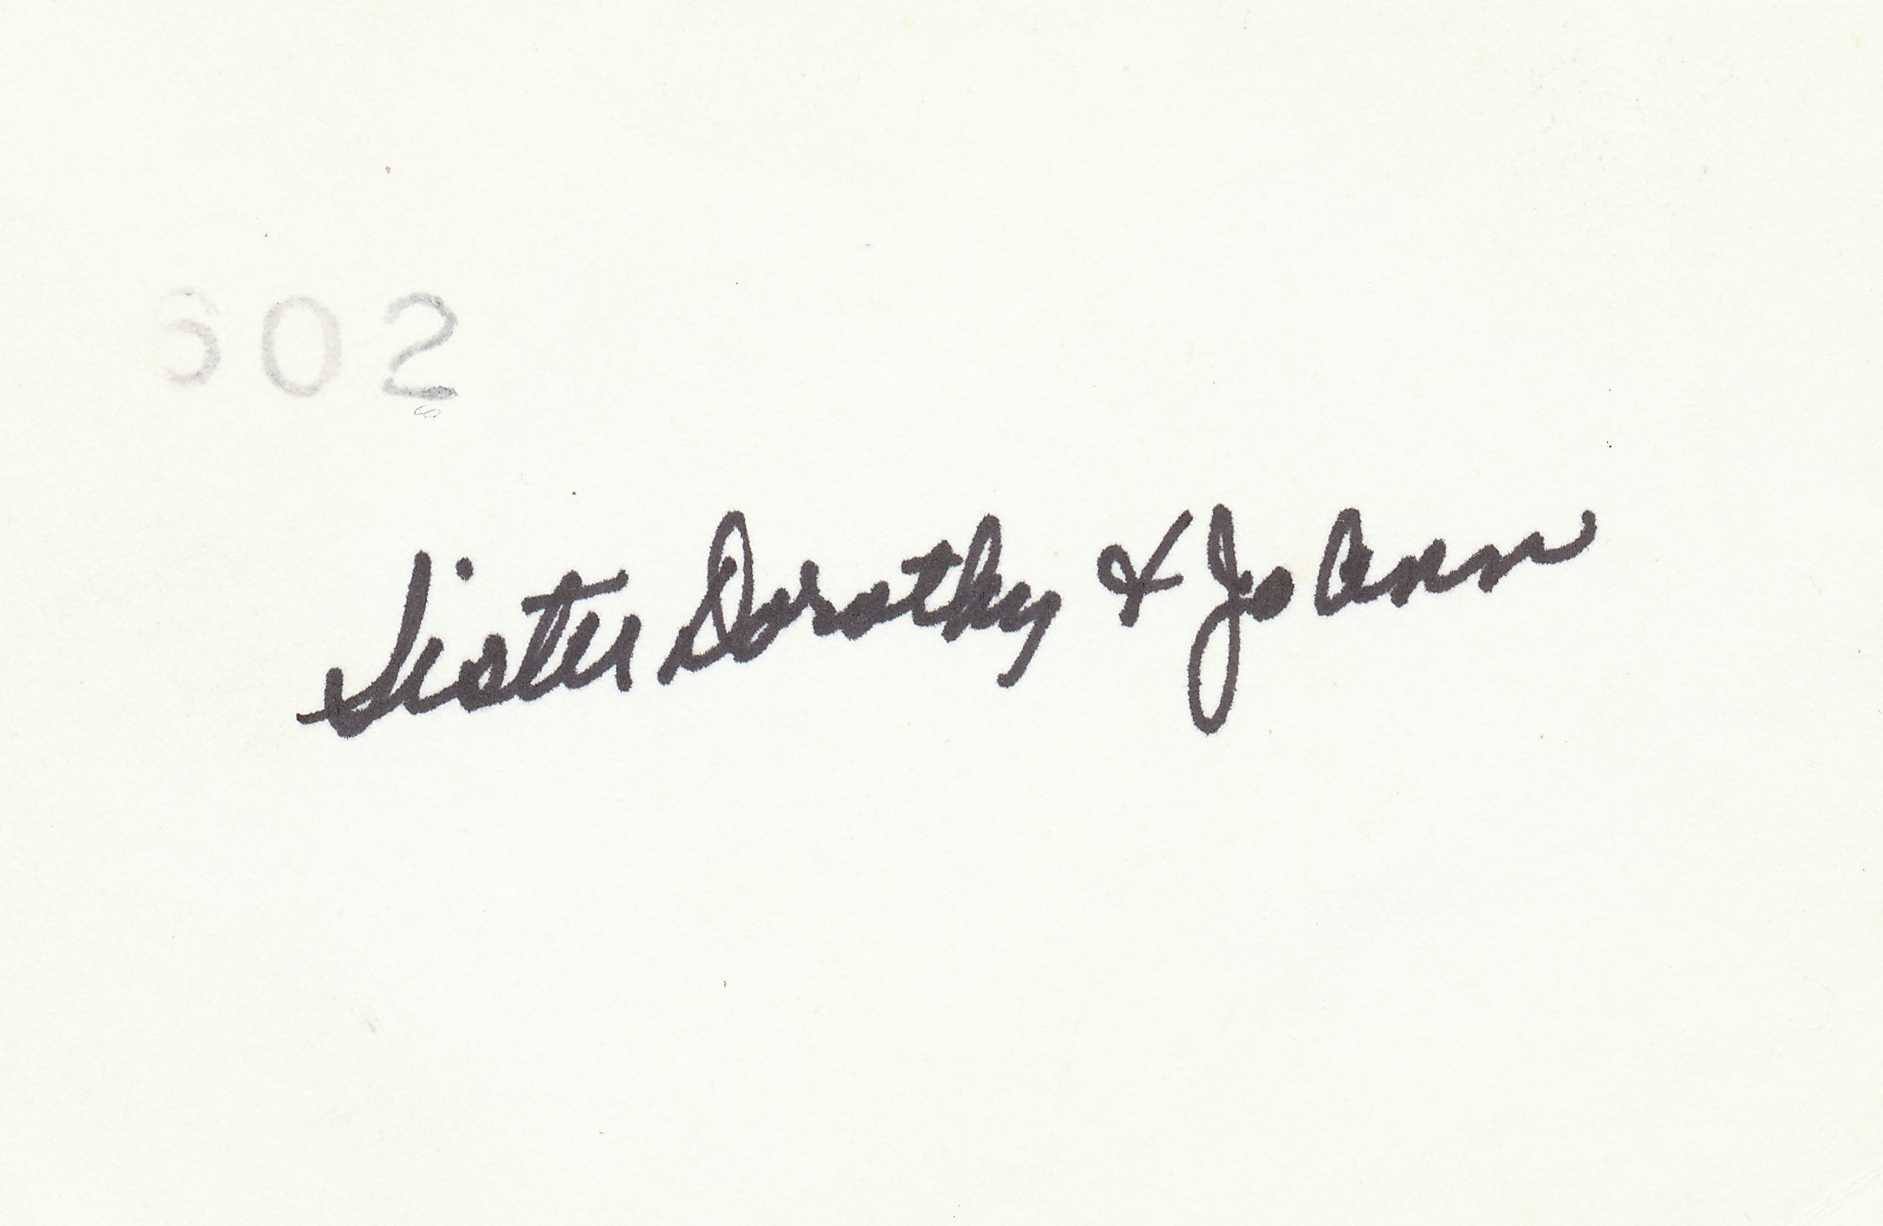 602
Sister Dorothy & Jo Ann